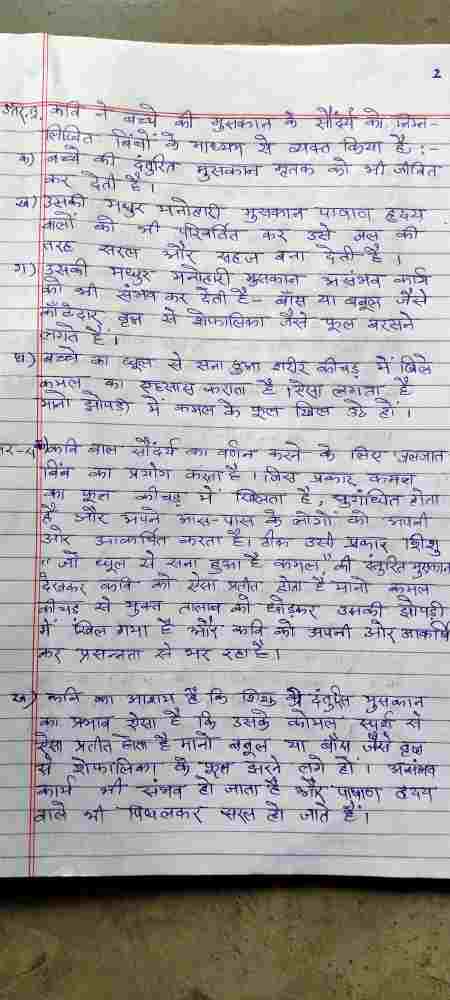 2
कवि ने बच्चे की मुसकान के सौंदर्य को निम्न-
लिखित बिंबों के माध्यम से व्यक्त किया है :-
क) बच्चे की दंतुरित मुसकान मृतक को भी जीवित
कर देती है।
ख) उसकी मधुर मनोहारी मुसकान पाषाण हृदय
वालों को भी परिवर्तित कर उसे जल की
तरह सरल और सहज बना देती है।
ग) उसकी मधुर मनोहारी मुसकान असंभव कार्य
को भी संभव कर देती है- बाँस या बबूल जैसे
काँटेदार वृक्ष से शेफालिका जैसे फूल बरसने
लगते हैं।
घ) बच्चे का धूल से सना हुआ शरीर कीचड़ में खिले
कमल का एहसास कराता है। ऐसा लगता है
मानो झोपड़ी में कमल के फूल खिल उठे हों।
कवि बाल सौंदर्य का वर्णन करने के लिए जलजात
बिंब का प्रयोग करता है। जिस प्रकार कमल
का फूल कीचड़ में खिलता है, सुगंधित होता
है और अपने आस-पास के लोगों को अपनी
ओर आकर्षित करता है। ठीक उसी प्रकार शिशु
"जो धूल से सना हुआ है कमल" की दंतुरित मुसकान
देखकर कवि को ऐसा प्रतीत होता है मानो कमल
कीचड़ से युक्त तालाब को छोड़कर उसकी झोपड़ी
में खिल गया है और कवि को अपनी ओर आकर्षि
कर प्रसन्नता से भर रहा है।
ख) कवि का आशय है कि शिशु की दंतुरित मुसकान
का प्रभाव ऐसा है कि उसके कोमल स्पर्श से
ऐसा प्रतीत होता है मानो बबूल या बाँस जैसे वृक्ष
से शेफालिका के फूल झरने लगे हों। असंभव
कार्य भी संभव हो जाता है और पाषाण हृदय
वाले भी पिघलकर सरल हो जाते हैं।